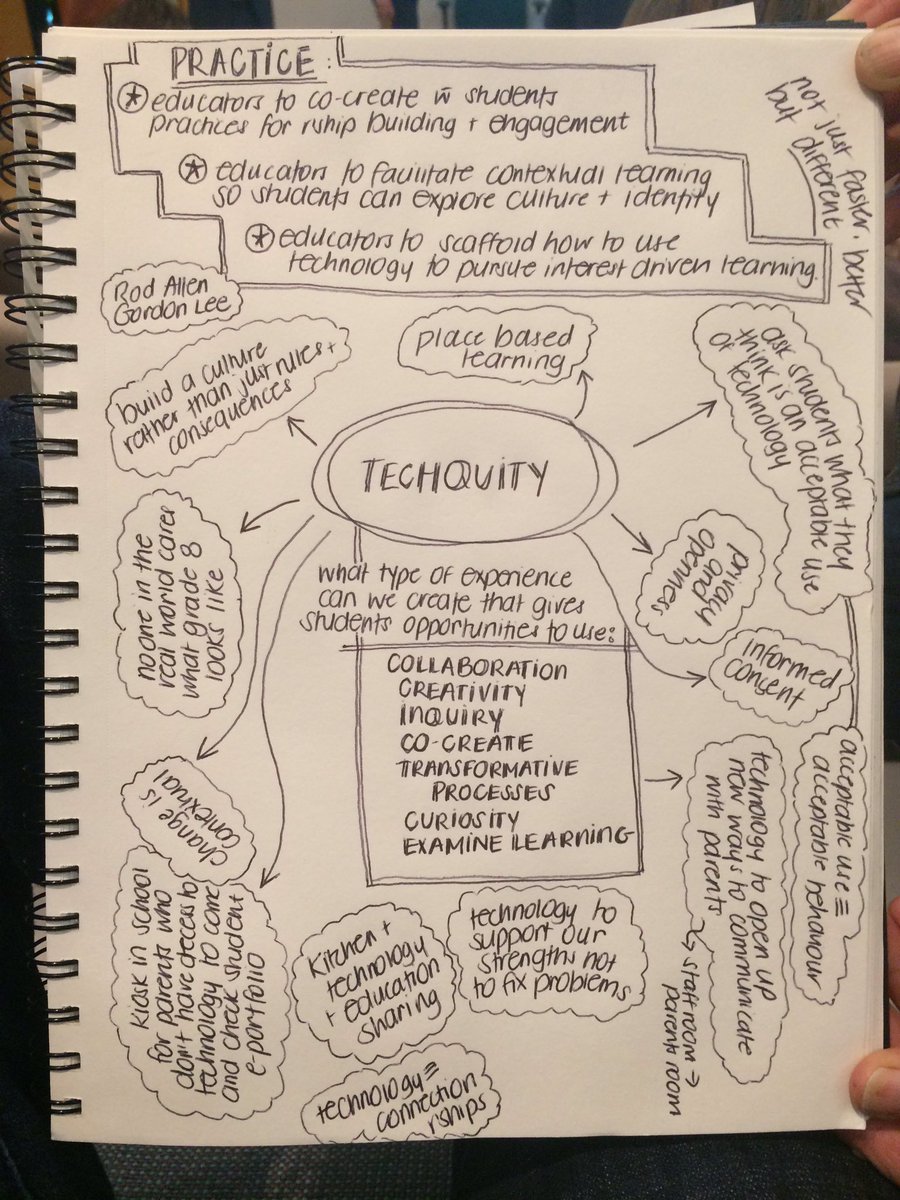 PRACTICE:
educators to co-create w̄ students
practices for rship building + engagement
educators to facilitate contextual learning
so students can explore culture + identity
educators to scaffold how to use
technology to pursue interest driven learning.
not just faster, better
but different
Rod Allen
Gordon Lee
build a culture
rather than just rules +
consequences
place based
learning
ask students what they
think is an acceptable use
of technology
TECHQUITY
no one in the
real world cares
what grade 8
looks like
privacy
and
openness
what type of experience
can we create that gives
students opportunities to use:
informed
consent
COLLABORATION
CREATIVITY
INQUIRY
CO-CREATE
TRANSFORMATIVE
PROCESSES
CURIOSITY
EXAMINE LEARNING
change is
contextual
technology to open up
new ways to communicate
with parents
staff room →
parents room
acceptable use =
acceptable behaviour
kiosk in school
for parents who
don't have access to
technology to come
and check student
e-portfolio
kitchen +
technology
+ education
sharing
technology to
support our
strengths not
to fix problems
technology =
connection
rships